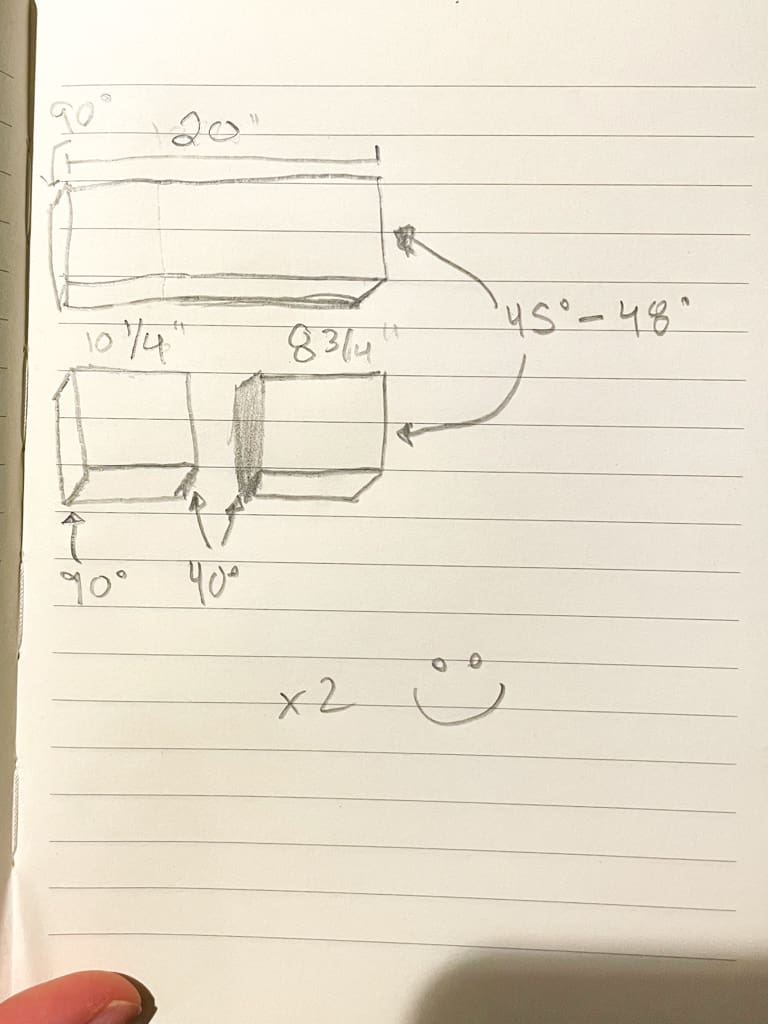 90°
20"
10 1/4"
8 3/4"
45° - 48°
90°
40°
x2